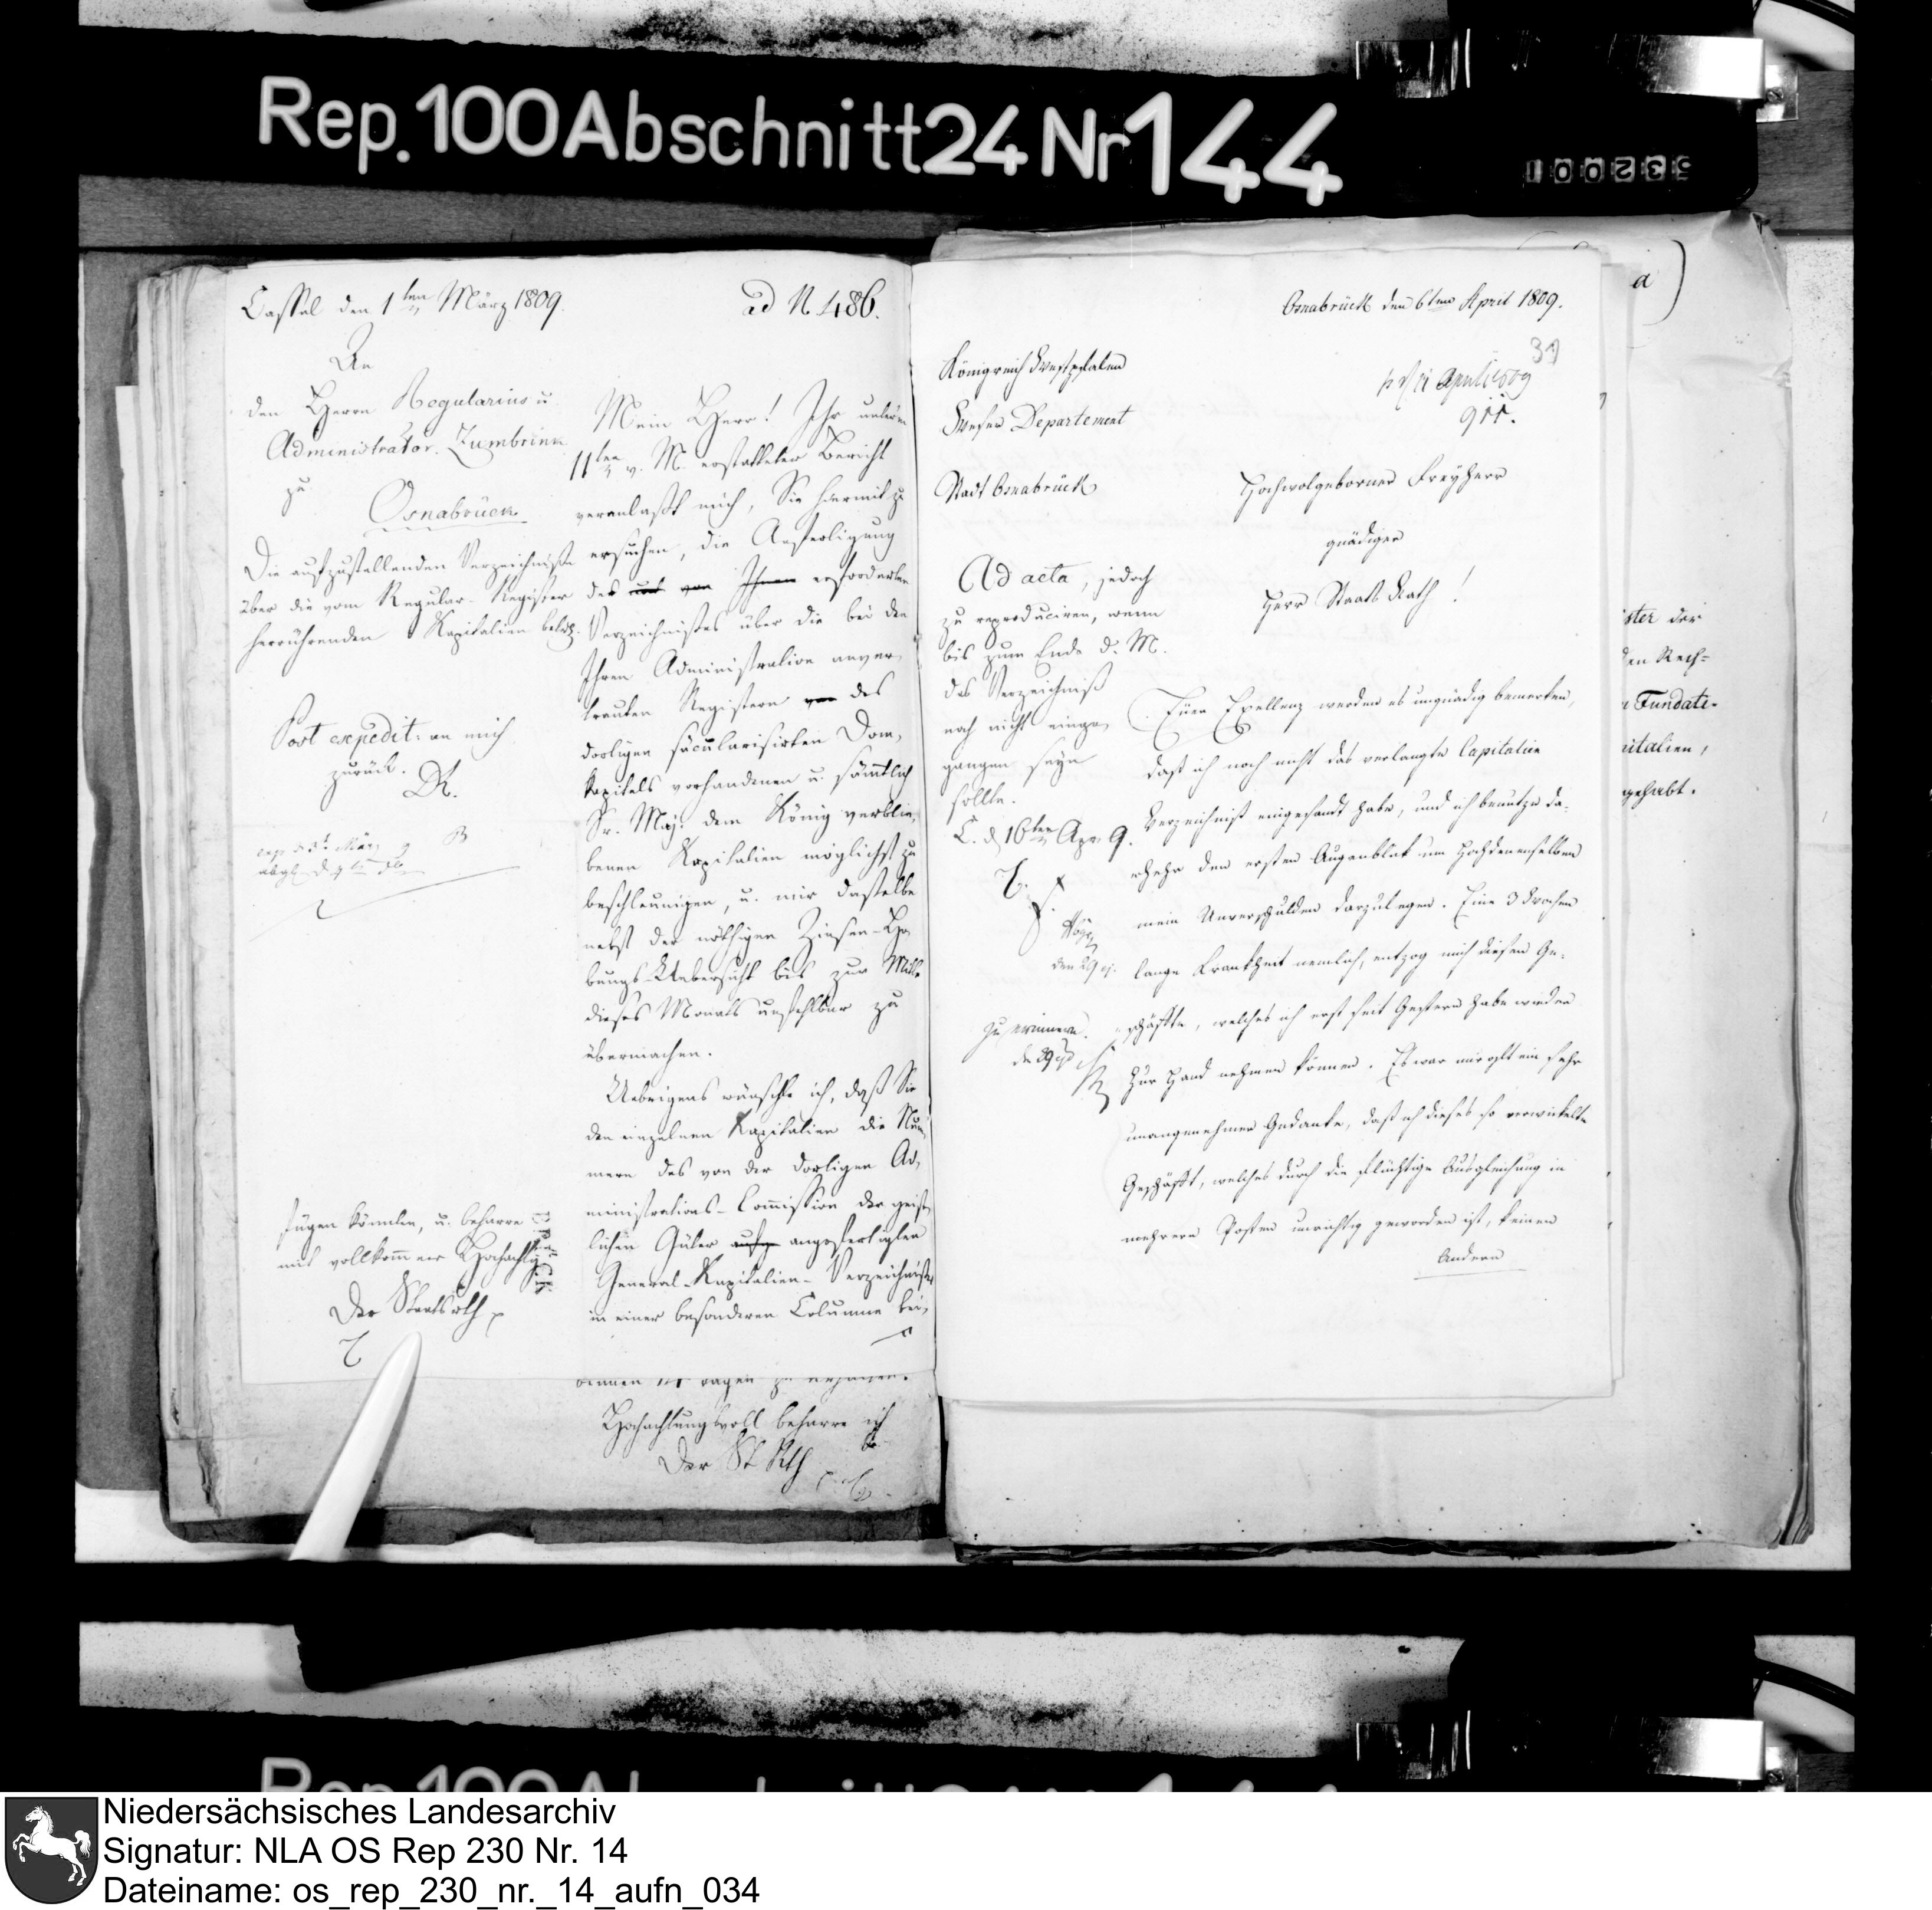 Rep. 100 Abschnitt 24 Nr 144
532001
Cassel den 1ten März 1809.
ad N. 486.
An
den Herrn Regularius u.
Administrator Zumbrink
zu
Osnabrück
Die aufzustellenden Verzeichniße
über die vom Regular-Register
herrührenden Kapitalien betr.
Post expedit. an mich
zurück.
Mein Herr! Ihr unterm
11ten v. M. erstatteter Bericht
veranlaßt mich, Sie hiermit zu
ersuchen, die Anfertigung
des und von Ihnen erforderten
Verzeichnißes über die bei den
Ihren Administration anver-
trauten Registern von des
dortigen säcularisirten Dom-
kapitels vorhandenen u. sämtlich
Sr. Maj. dem König verblie-
benen Kapitalien möglichst zu
beschleunigen, u. mir dasselbe
nebst der nöthigen Zinsen-He-
bungs-Uebersicht bis zur Mitte
dieses Monats unfehlbar zu
übermachen.
Uebrigens wünschte ich, daß Sie
den einzelnen Kapitalien die Num-
mern des von der dortigen Ad-
ministrations-Commission der geist-
lichen Güter aufge angefertigten
General-Kapitalien-Verzeichnißes
in einer besonderen Columne bei-
fügen könnten, u. beharre
mit vollkommner Hochachtg
Der Staatsrth
binnen 14 Tagen zu erhalten.
Hochachtungsvoll beharre ich
Der St Rth
Osnabrück den 6ten April 1809.
31
911.
Königreich Westphalen
Weser Departement
Stadt Osnabrück
Hochwolgeborner Freyherr
gnädiger
Herr Staats Rath!
Ad acta, jedoch
zu reproduciren, wenn
bis zum Ende d. M.
das Verzeichniß
noch nicht einge-
gangen seyn
sollte.
C. d 16ten Apr 9.
den 29 ej.
zu erinnern.
Euer Exellenz werden es ungnädig bemerken,
daß ich noch nicht das verlangte Capitalien
Verzeichniß eingesandt habe, und ich benutze da-
hehr den ersten Augenblick um Hochdenenselben
mein Unverschulden darzulegen. Eine 3 Wochen
lange Krankheit nemlich, entzog mich diesen Ge-
schäffte, welches ich erst seit Gestern habe wieder
zur Hand nehmen können. Es war mir oft ein sehr
unangenehmer Gedanke, daß ich dieses so verwickelte
Geschäfft, welches durch die flüchtige Ausgleichung in
mehrern Posten unrichtig geworden ist, keinen
Andern
a)
ster der
den Rech-
n Fundati-
itatien,
gehabt.
Niedersächsisches Landesarchiv
Signatur: NLA OS Rep 230 Nr. 14
Dateiname: os_rep_230_nr._14_aufn_034